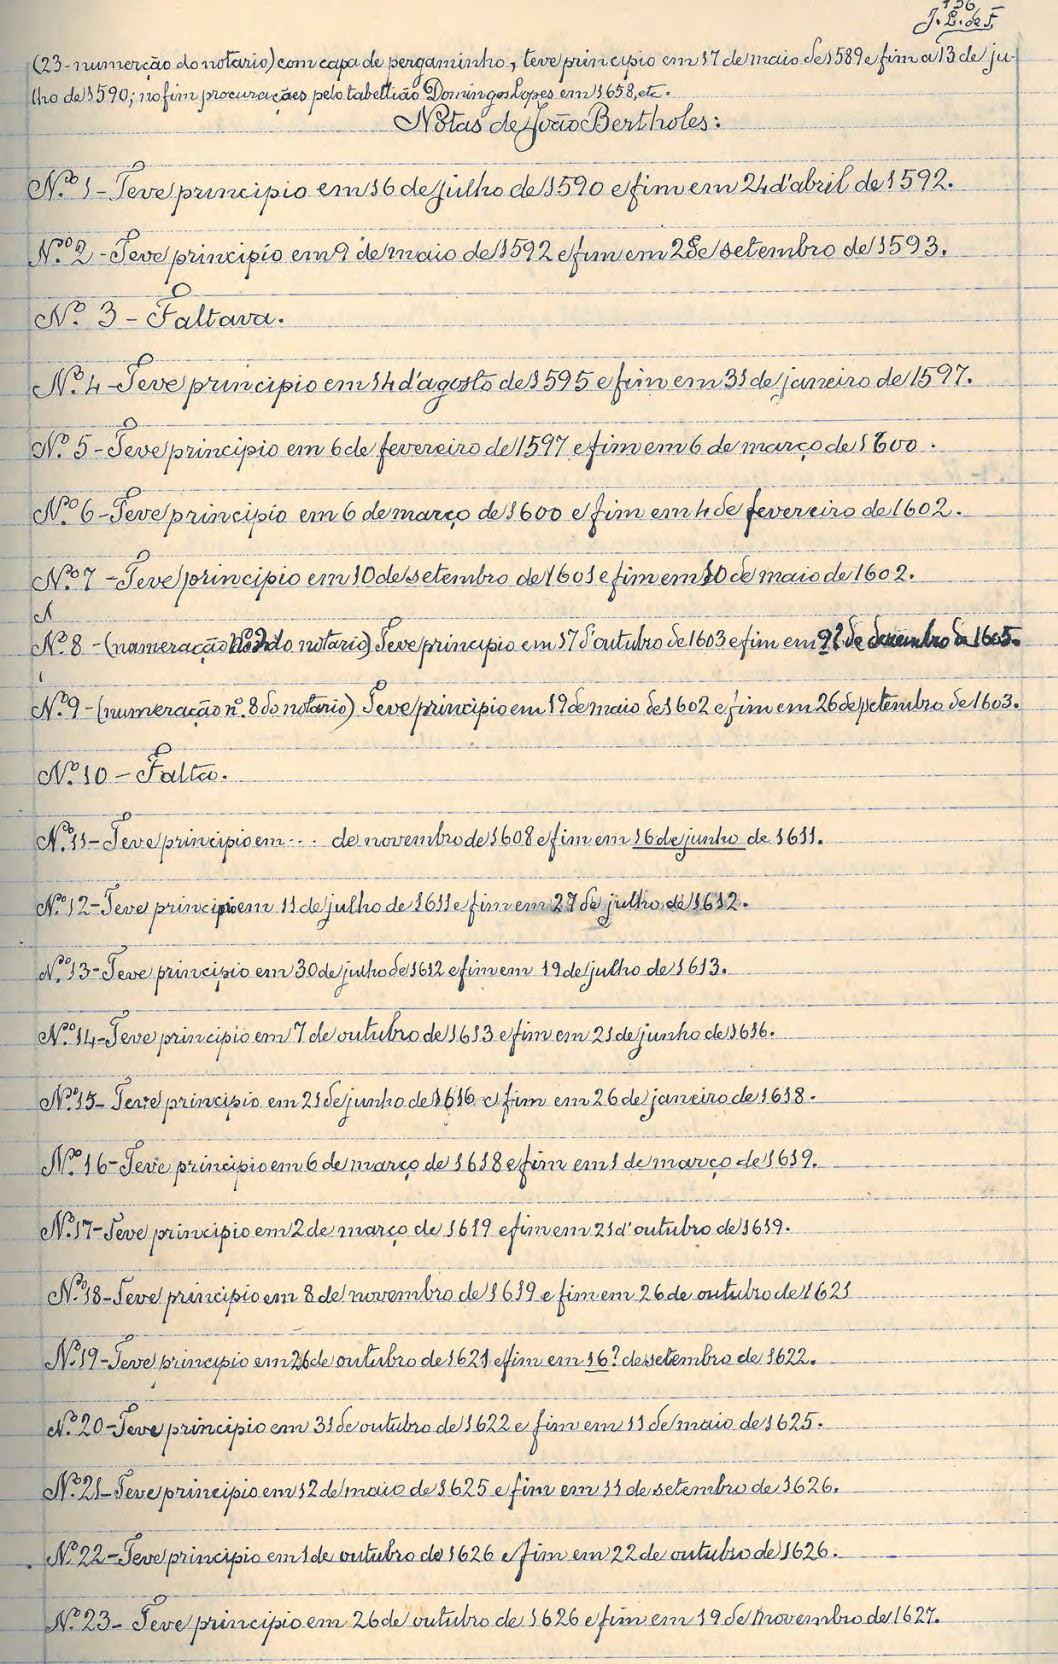 136
J. L. de F.
(23-numerção do notario) com capa de pergaminho, teve principio em 17 de maio de 1589 e fim a 13 de ju-
lho de 1590; no fim procurações pelo tabellião Domingos Lopes em 1658, etc.
Notas de João Bertholes:
N.º 1 - Teve principio em 16 de julho de 1590 e fim em 24 d'abril de 1592.
N.º 2 - Teve principio em 9 de maio de 1592 e fim em 2 de setembro de 1593.
N.º 3 - Faltava.
N.º 4 - Teve principio em 14 d'agosto de 1595 e fim em 31 de janeiro de 1597.
N.º 5 - Teve principio em 6 de fevereiro de 1597 e fim em 6 de março de 1600.
N.º 6 - Teve principio em 6 de março de 1600 e fim em 4 de fevereiro de 1602.
N.º 7 - Teve principio em 10 de setembro de 1601 e fim em 10 de maio de 1602.
N.º 8 - (numeração do notario) Teve principio em 17 d'outubro de 1603 e fim em de dezembro de 1605.
N.º 9 - (numeração n.º 8 do notario) Teve principio em 19 de maio de 1602 e fim em 26 de setembro de 1603.
N.º 10 - Falta.
N.º 11 - Teve principio em ... de novembro de 1608 e fim em 16 de junho de 1611.
N.º 12 - Teve principio em 11 de julho de 1611 e fim em 27 de julho de 1612.
N.º 13 - Teve principio em 30 de julho de 1612 e fim em 19 de julho de 1613.
N.º 14 - Teve principio em 7 de outubro de 1613 e fim em 21 de junho de 1616.
N.º 15 - Teve principio em 21 de junho de 1616 e fim em 26 de janeiro de 1618.
N.º 16 - Teve principio em 6 de março de 1618 e fim em 1 de março de 1619.
N.º 17 - Teve principio em 2 de março de 1619 e fim em 21 d'outubro de 1619.
N.º 18 - Teve principio em 8 de novembro de 1619 e fim em 26 de outubro de 1621
N.º 19 - Teve principio em 26 de outubro de 1621 e fim em 16? de setembro de 1622.
N.º 20 - Teve principio em 31 de outubro de 1622 e fim em 11 de maio de 1625.
N.º 21 - Teve principio em 12 de maio de 1625 e fim em 11 de setembro de 1626.
N.º 22 - Teve principio em 1 de outubro de 1626 e fim em 22 de outubro de 1626.
N.º 23 - Teve principio em 26 de outubro de 1626 e fim em 19 de novembro de 1627.